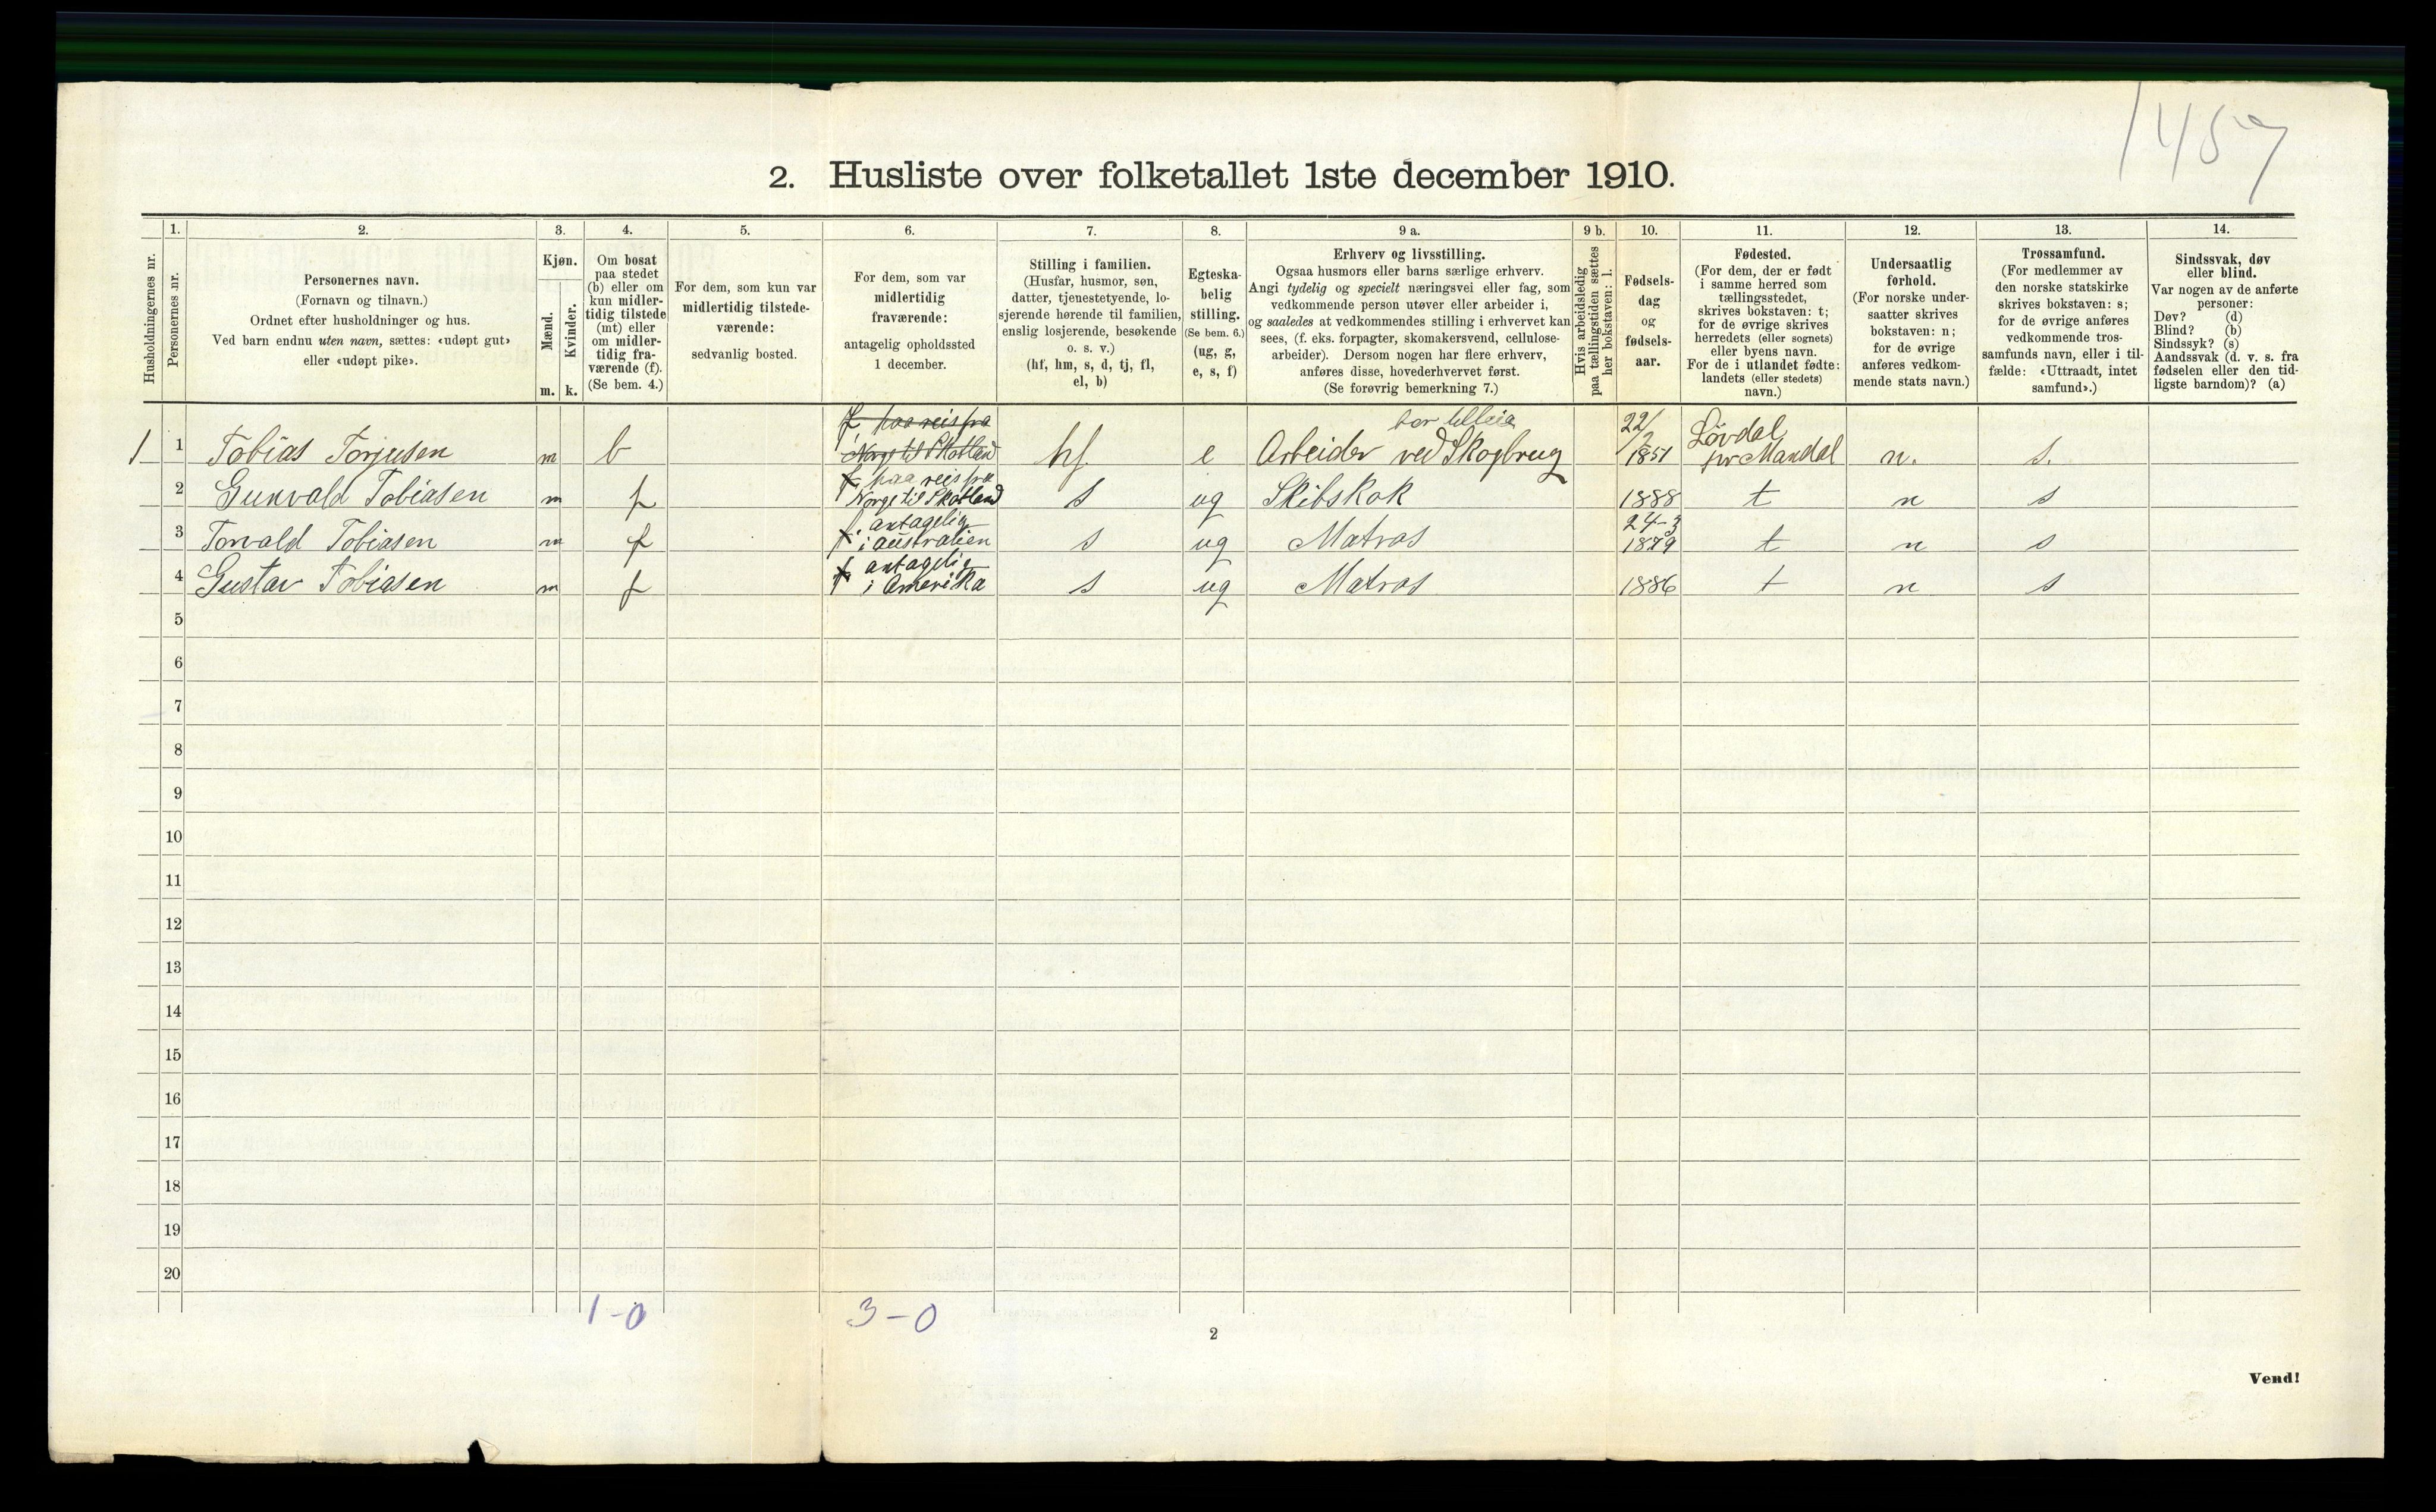 1457
2. Husliste over folketallet 1ste december 1910.
Husholdningernes nr.
1.
Personernes nr.
2.
Personernes navn.
(Fornavn og tilnavn.)
Ordnet efter husholdninger og hus.
Ved barn endnu uten navn, sættes: «udøpt gut»
eller «udøpt pike».
3.
Kjøn.
Mænd.
Kvinder.
m. k.
4.
Om bosat
paa stedet
(b) eller om
kun midler-
tidig tilstede
(mt) eller
om midler-
tidig fra-
værende (f).
(Se bem. 4.)
5.
For dem, som kun var
midlertidig tilstede-
værende:
sedvanlig bosted.
6.
For dem, som var
midlertidig
fraværende:
antagelig opholdssted
1 december.
7.
Stilling i familien.
(Husfar, husmor, søn,
datter, tjenestetyende, lo-
sjerende hørende til familien,
enslig losjerende, besøkende
o. s. v.)
(hf, hm, s, d, tj, fl,
el, b)
8.
Egteska-
belig
stilling.
(Se bem. 6.)
(ug, g,
e, s, f)
9 a.
Erhverv og livsstilling.
Ogsaa husmors eller barns særlige erhverv.
Angi tydelig og specielt næringsvei eller fag, som
vedkommende person utøver eller arbeider i,
og saaledes at vedkommendes stilling i erhvervet kan
sees, (f. eks. forpagter, skomakersvend, cellulose-
arbeider). Dersom nogen har flere erhverv,
anføres disse, hovederhvervet først.
(Se forøvrig bemerkning 7.)
9 b.
Hvis arbeidsledig
paa tællingstiden sættes
her bokstaven: l.
10.
Fødsels-
dag
og
fødsels-
aar.
11.
Fødested.
(For dem, der er født
i samme herred som
tællingsstedet,
skrives bokstaven: t;
for de øvrige skrives
herredets (eller sognets)
eller byens navn.
For de i utlandet fødte:
landets (eller stedets)
navn.)
12.
Undersaatlig
forhold.
(For norske under-
saatter skrives
bokstaven: n;
for de øvrige
anføres vedkom-
mende stats navn.)
13.
Trossamfund.
(For medlemmer av
den norske statskirke
skrives bokstaven: s;
for de øvrige anføres
vedkommende tros-
samfunds navn, eller i til-
fælde: «Uttraadt, intet
samfund».)
14.
Sindssvak, døv
eller blind.
Var nogen av de anførte
personer:
Døv? (d)
Blind? (b)
Sindssyk? (s)
Aandssvak (d. v. s. fra
fødselen eller den tid-
ligste barndom)? (a)
1 1 Tobias Torjusen m b f paa reis fra Norge til Skotland hf e Arbeider ved Skogbrug 22/2 1851 Lövdal pr Mandal n. s.
2 Gunvald Tobiasen m f f paa reis fra Norge til Skotland s ug Skibskok 1888 t n s
3 Torvald Tobiasen m f f. antagelig i australien s ug Matros 24-3 1879 t n s
4 Gustav Tobiasen m f f antagelig i Amerika s ug Matros 1886 t n s
5
6
7
8
9
10
11
12
13
14
15
16
17
18
19
20
1-0 3-0
2
Vend!